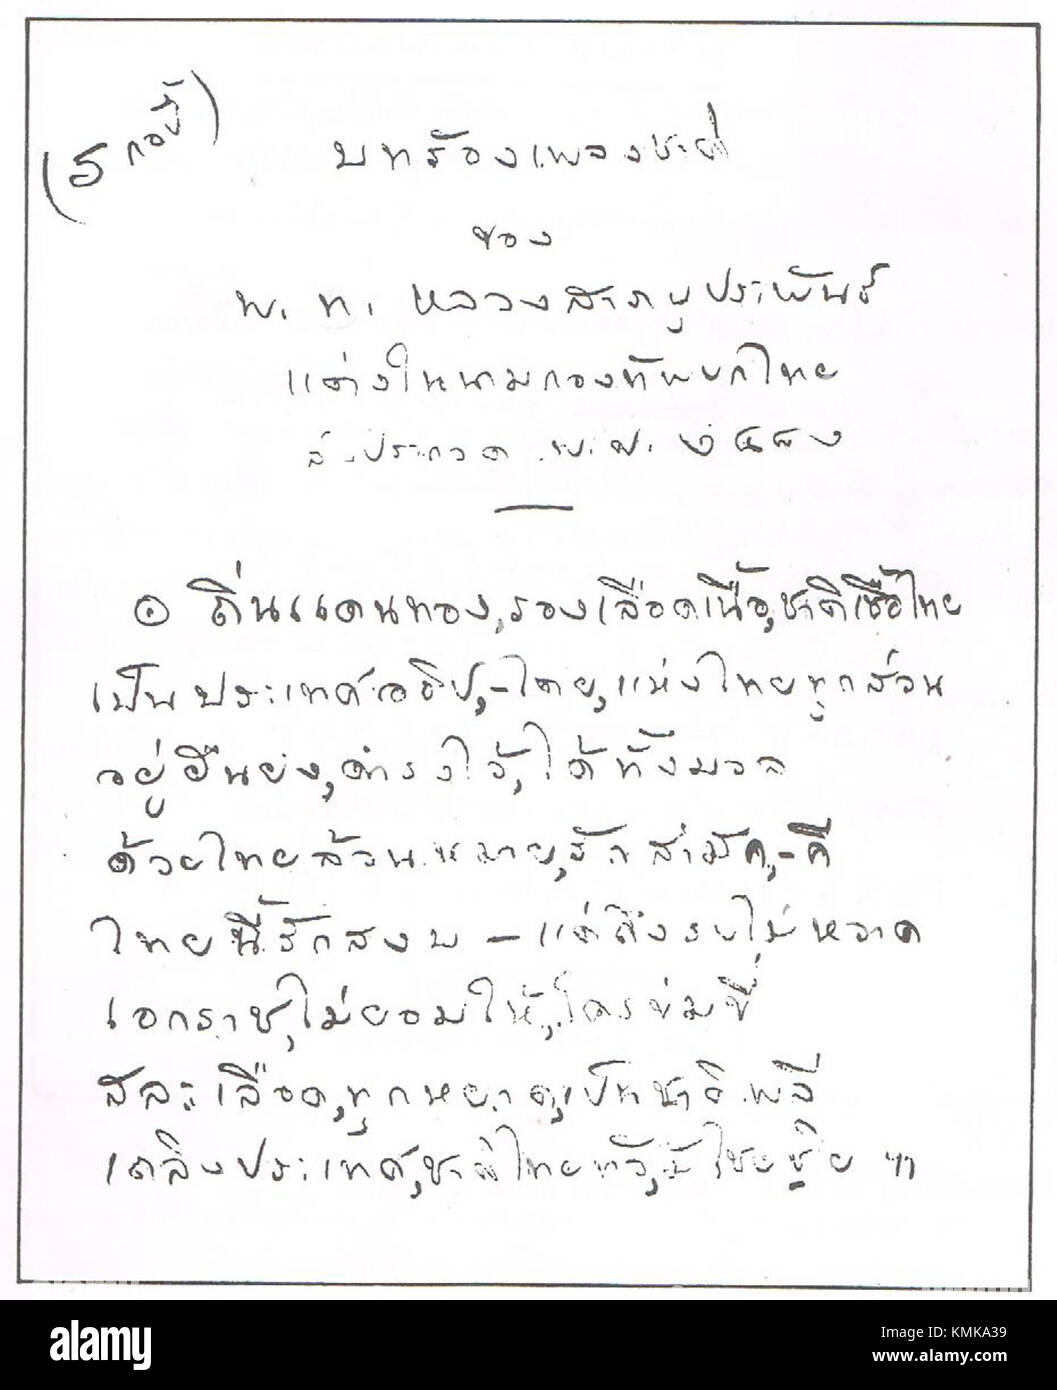 (5 กอปี้)
บทร้องเพลงชาติ
ของ
พ.ท. หลวงสารานุประพันธ์
แต่งในนามกองทัพบกไทย
ส่งประกวด พ.ศ. ๒๔๘๒
๏ ถิ่นแดนทอง,รองเลือดเนื้อ,ชาติเชื้อไทย
เป็นประเทศอธิป,-ไตย,แห่งไทยทุกส่วน
อยู่ยืนยง,ดำรงไว้,ได้ทั้งมวล
ด้วยไทยล้วนหมาย,รักสามัค,-คี
ไทยนี้รักสงบ – แต่ถึงรบไม่หวาด
เอกราช,ไม่ยอมให้,ใครข่มขี่
สละเลือด,ทุกหยาด,เป็นชาติพลี
เถลิงประเทศ,ชาติไทยทวี,มีไชย ฯ
alamy
Image ID: KMKA39
www.alamy.com